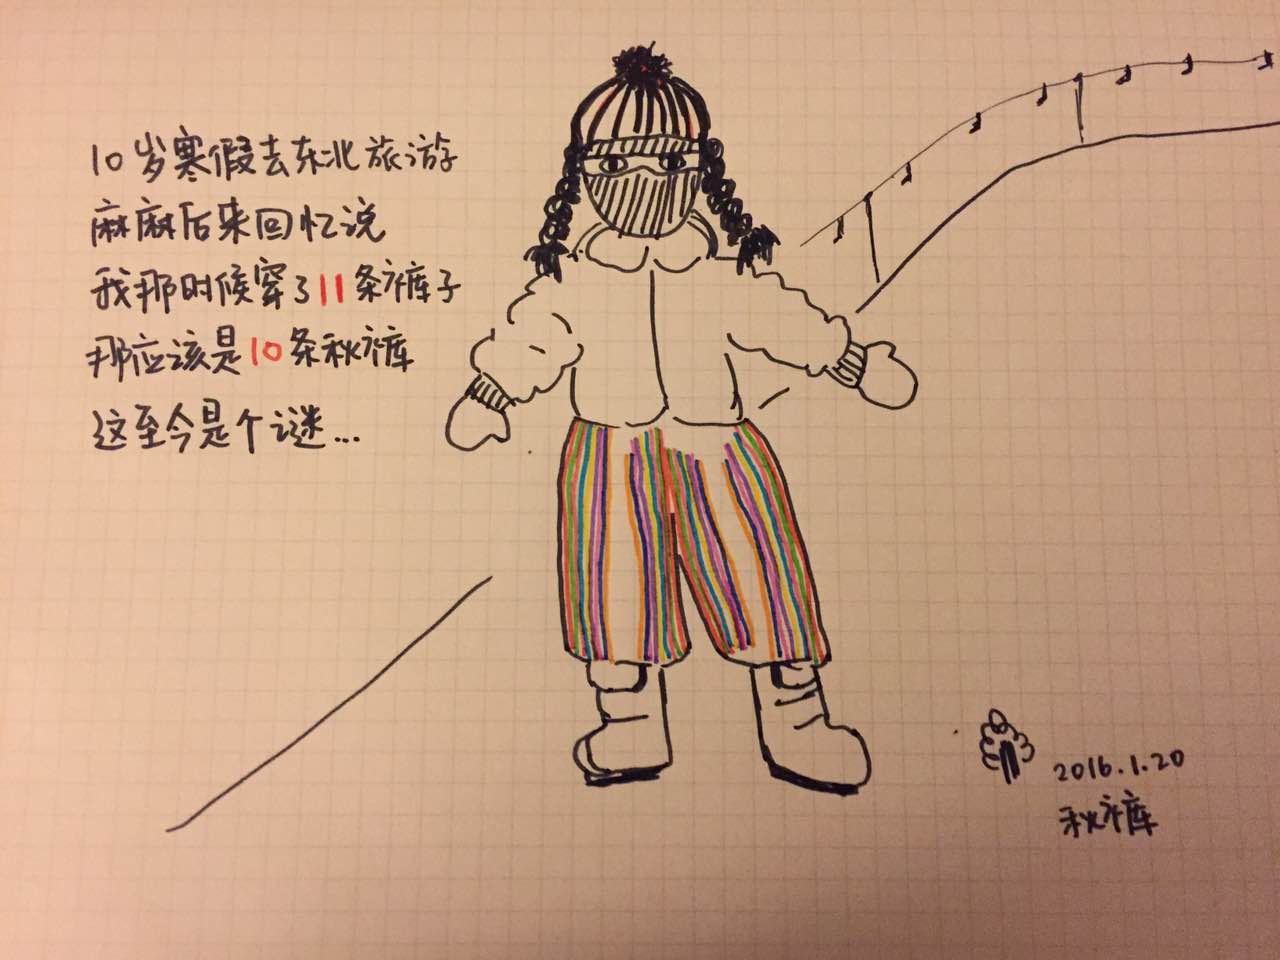 10岁寒假去东北旅游
麻麻后来回忆说
我那时候穿了11条裤子
那应该是10条秋裤
这至今是个谜...
2016.1.20
秋裤